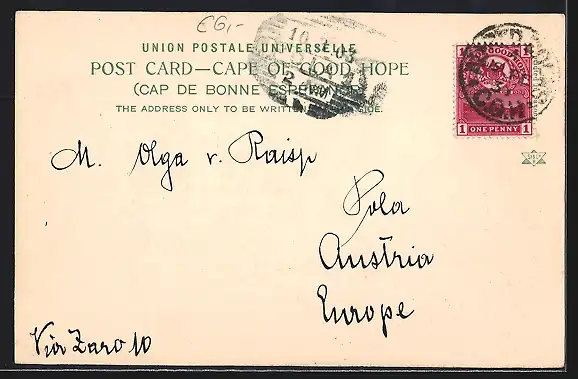 €6,-
UNION POSTALE UNIVERSELLE
POST CARD—CAPE OF GOOD HOPE
(CAP DE BONNE ESPÉRANCE)
THE ADDRESS ONLY TO BE WRITTEN SIDE.
10 03
1 1
1 ONE PENNY 1
M. Olga v. Raisp
Pola
Austria
Europe
Via Zaro 10